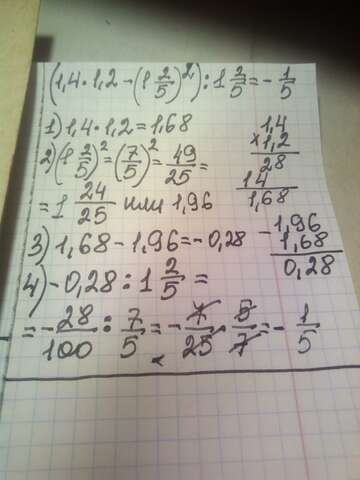 (1,4·1,2-(1 2/5)²):1 2/5=-1/5
1) 1,4·1,2=1,68
1,4
×1,2
28
14
1,68
2) (1 2/5)²=(7/5)²=49/25=
=1 24/25 или 1,96
3) 1,68-1,96=-0,28
-1,96
1,68
0,28
4) -0,28:1 2/5=
=-28/100:7/5=-7/25·5/7=-1/5